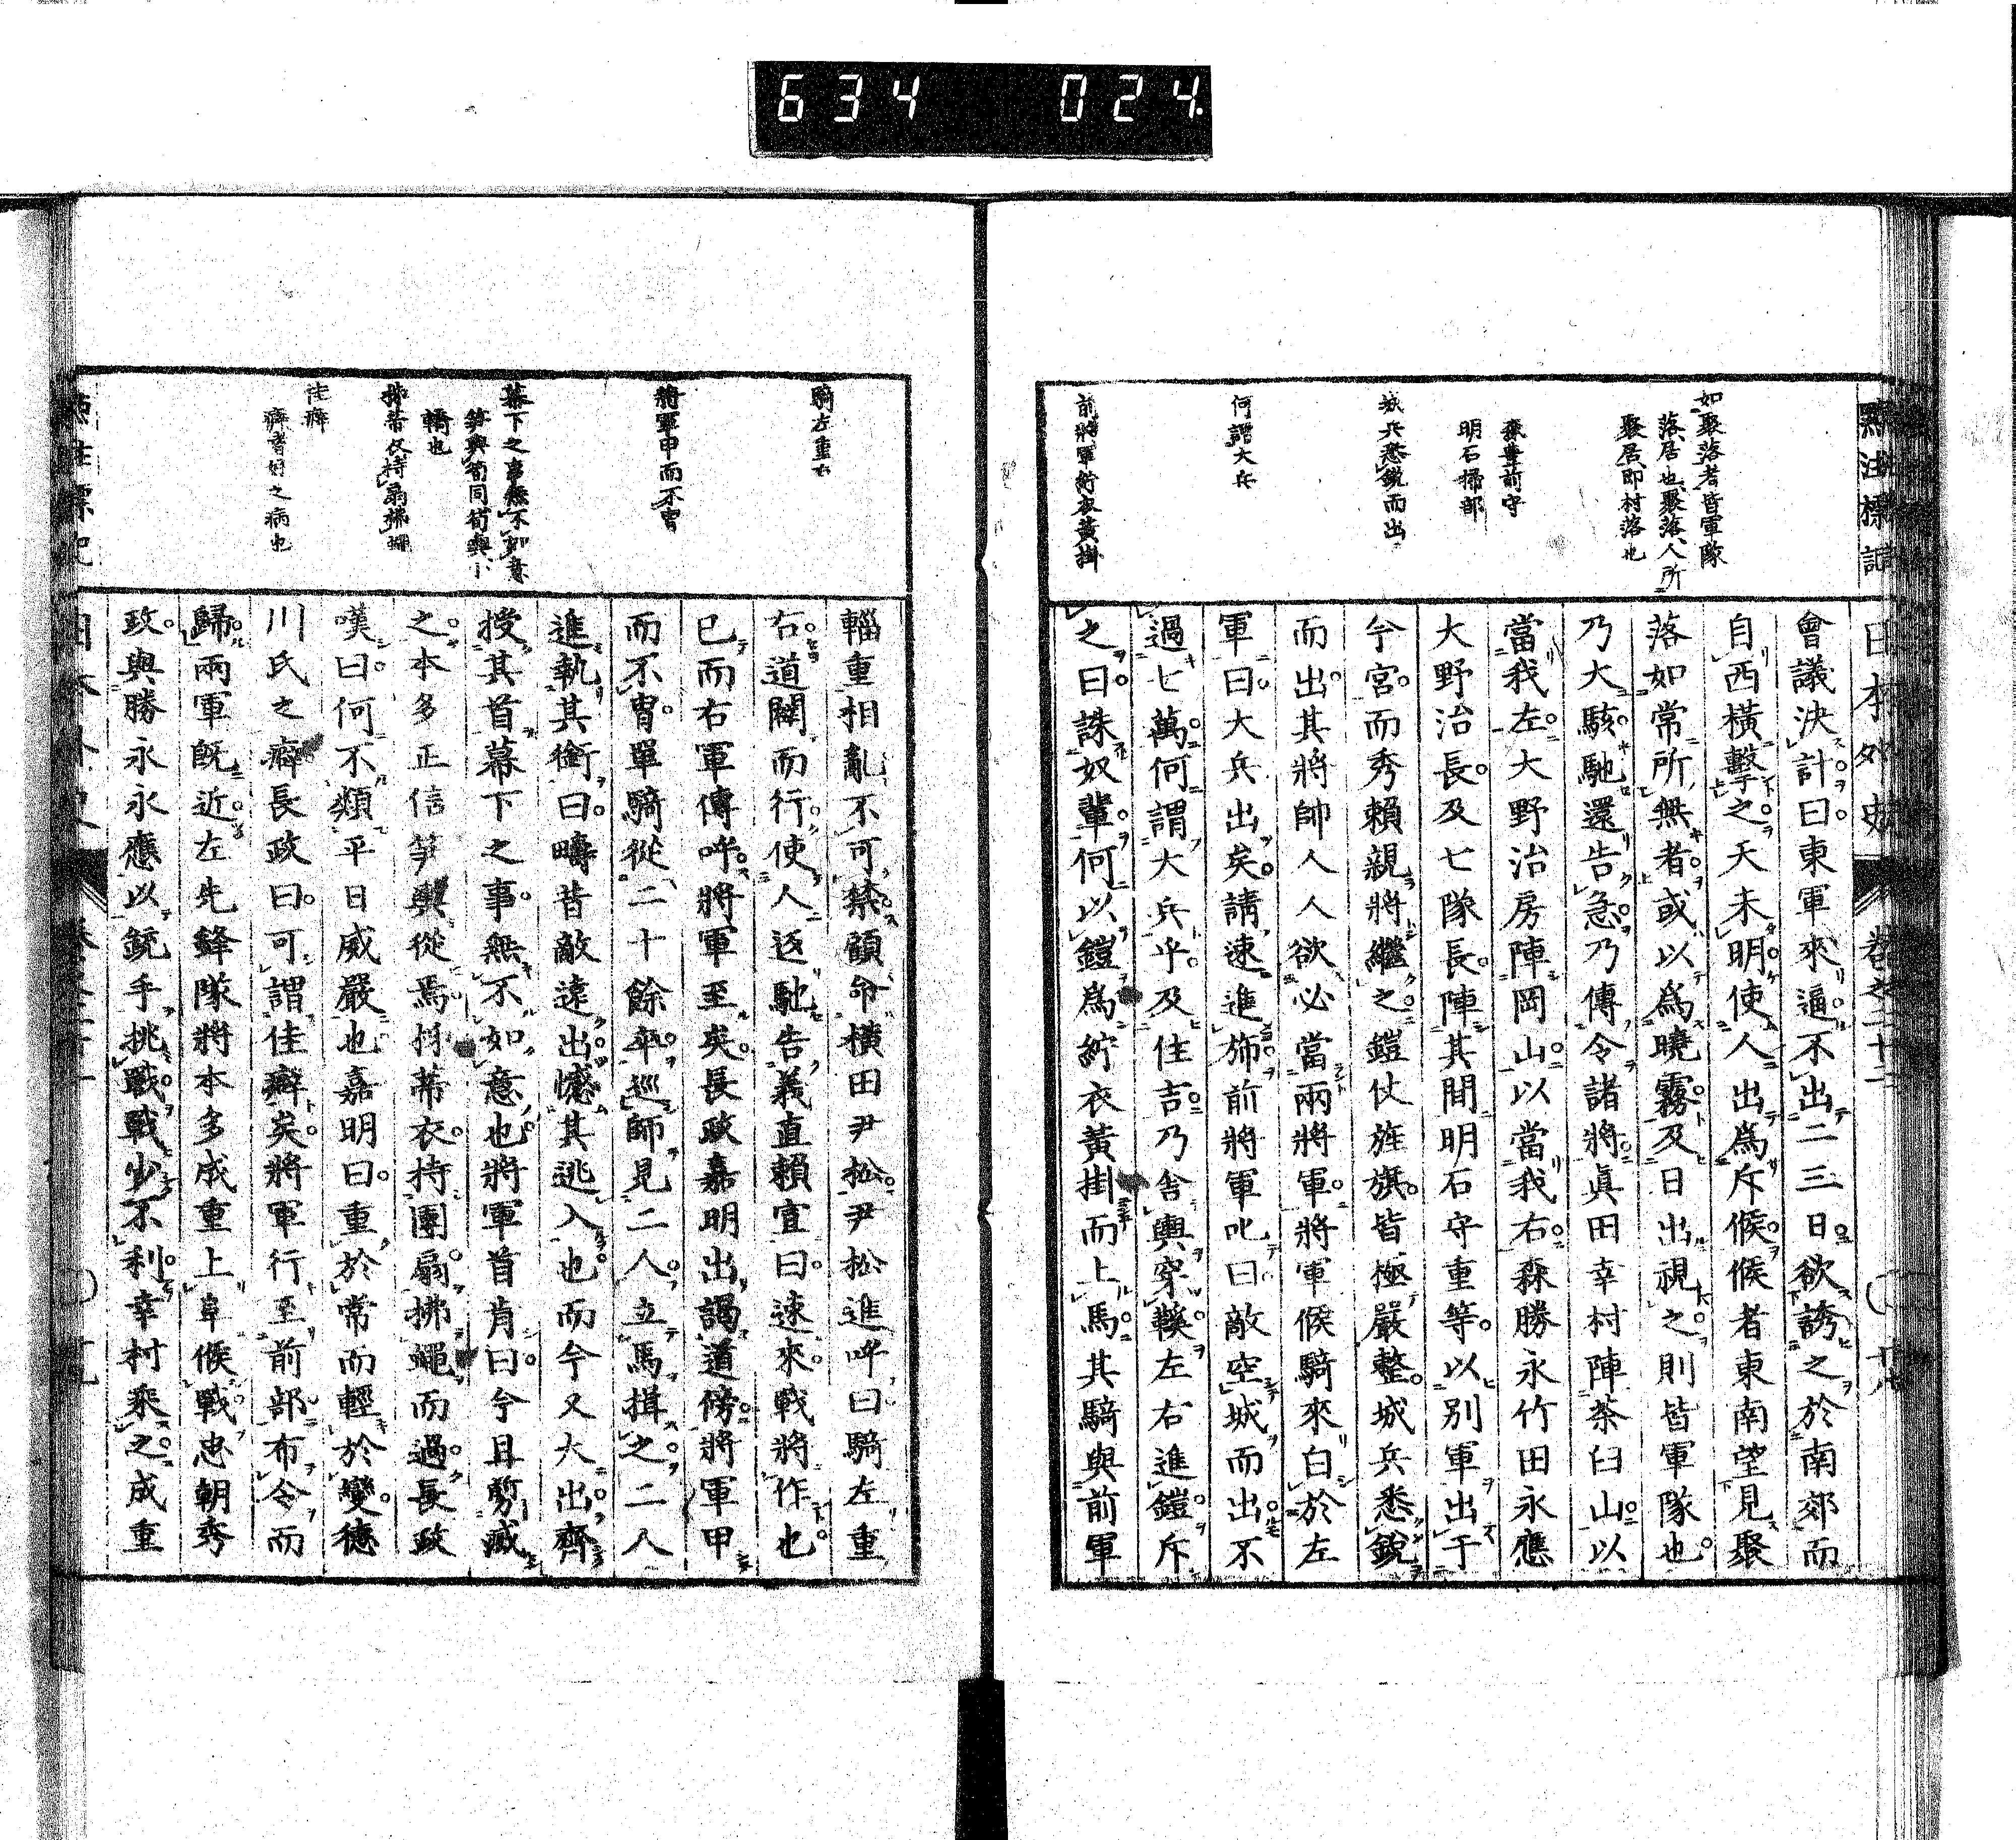 634 024.
點註標記
日本外史 卷之二十二
如聚落者皆軍隊
落居也聚落人所
聚居即村落也
森豊前守
明石掃部
城兵悉鋭而出
何謂大兵
前將軍紵衣黃掛
會議決計曰東軍來逼不出二三日欲誘之於南郊而
自西橫擊之天未明使人出爲斥候候者東南望見聚
落如常所無者或以爲曉霧及日出視之則皆軍隊也
乃大駭馳還告急乃傳令諸將眞田幸村陣茶臼山以
當我左大野治房陣岡山以當我右森勝永竹田永應
大野治長及七隊長陣其間明石守重等以別軍出于
今宮而秀賴親將繼之鎧仗旌旗皆極嚴整城兵悉銳
而出其將帥人人欲必當兩將軍將軍候騎來白於左
軍曰大兵出矣請速進斾前將軍叱曰敵空城而出不
過七萬何謂大兵乎及住吉乃舍輿穿韈左右進鎧斥
之曰誅奴輩何以鎧爲紵衣黃掛而上馬其騎與前軍
騎左重右
將軍甲而不冑
幕下之事無不如意
笋輿筍同筍輿小
轎也
佳癖
癖者好之病也
輜重相亂不可禁顧命橫田尹松尹松進呼曰騎左重
右道闢而行使人返馳告義直賴宣曰速來戰將作也
已而右軍傳呼將軍至矣長政嘉明出謁道傍將軍甲
而不冑單騎從二十餘卒巡師見二人立馬揖之二人
進執其銜曰疇昔敵遠出憾其逃入也而今又大出齊
授其首幕下之事無不如意也將軍首肯曰今且剪滅
之本多正信笋輿從焉持團扇拂蠅而過長政
嘆曰何不類平日威嚴也嘉明曰重於常而輕於變德
川氏之癖長政曰可謂佳癖矣將軍行至前部布令而
歸兩軍既近左先鋒隊將本多成重上阜候戰忠朝秀
政與勝永永應以銃手挑戰戰少不利幸村乘之成重